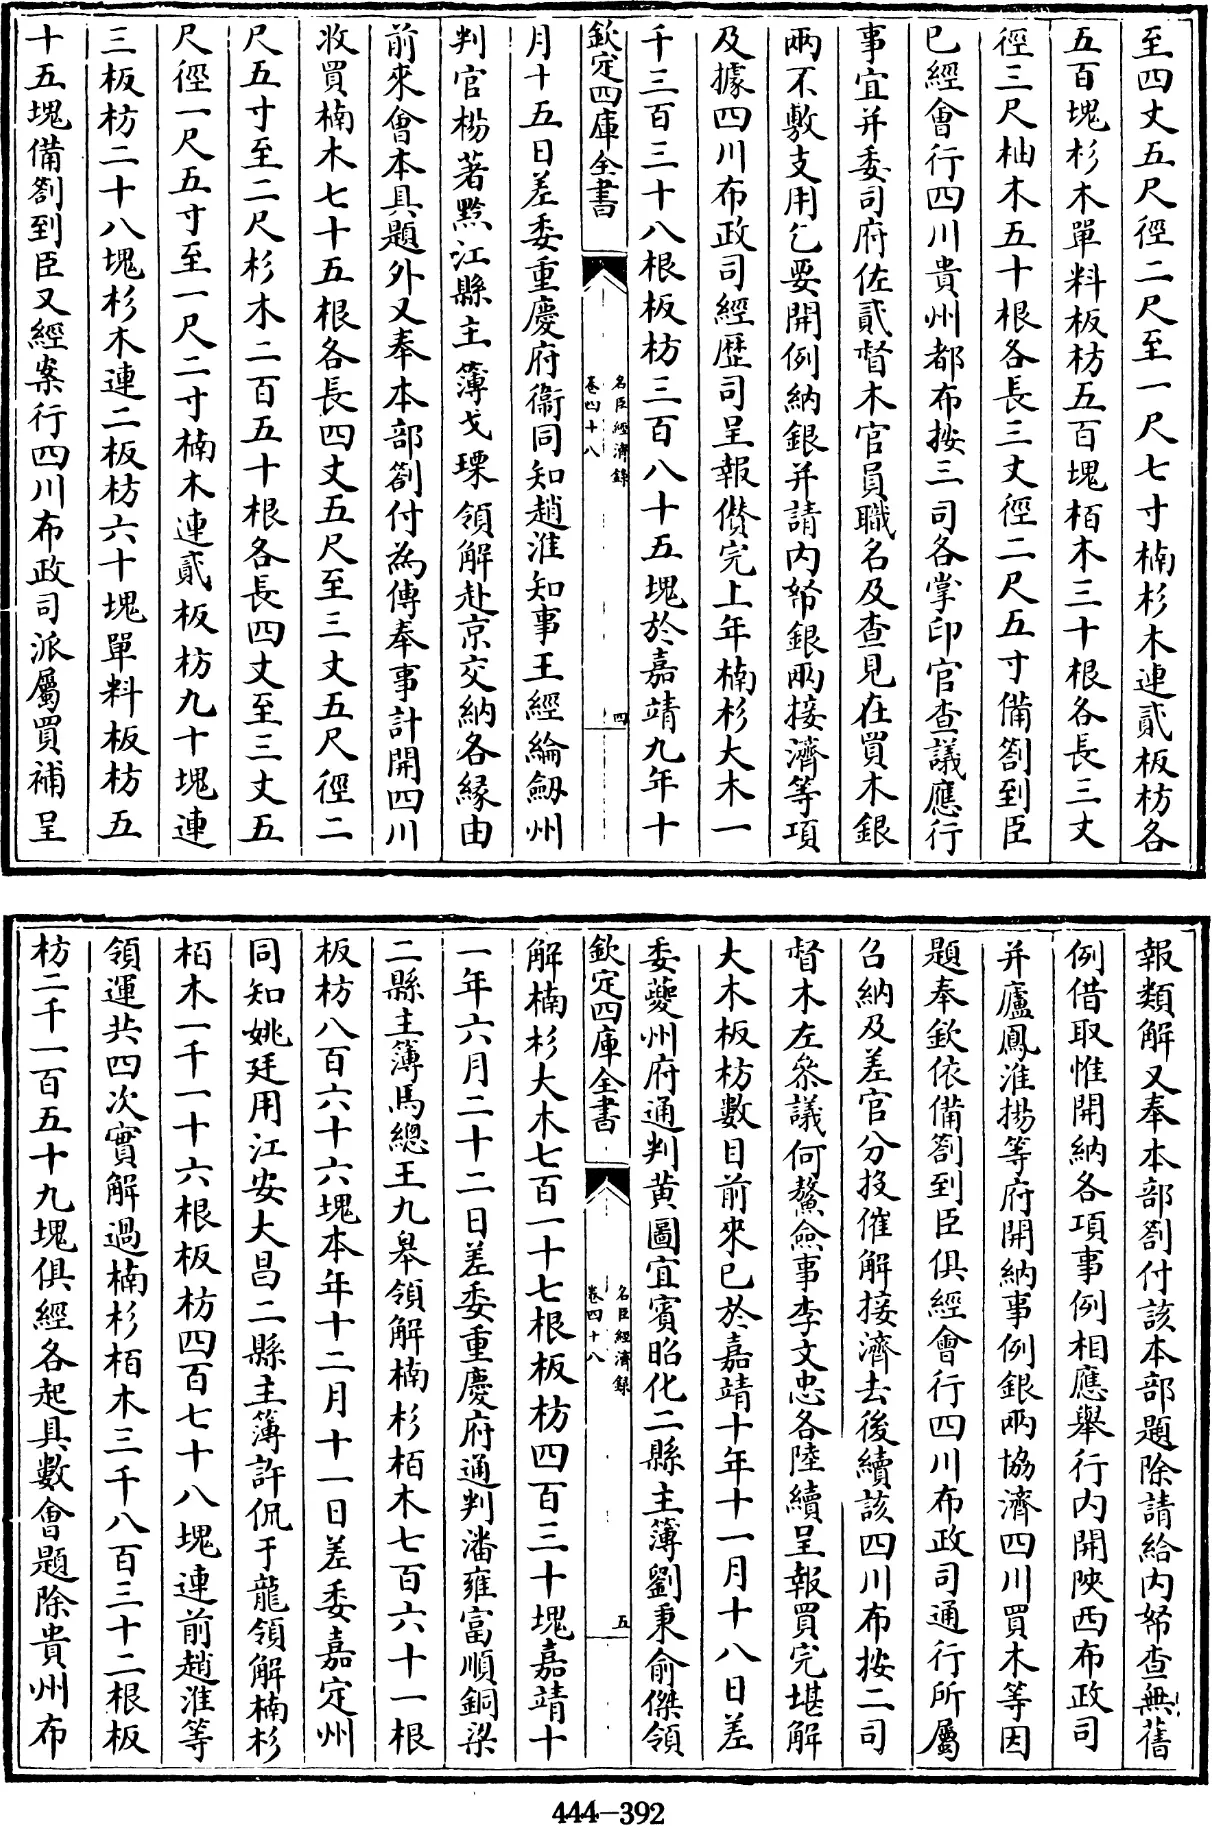 至四丈五尺徑二尺至一尺七寸楠杉木連貳板枋各
五百塊杉木單料板枋五百塊栢木三十根各長三丈
徑三尺柚木五十根各長三丈徑二尺五寸備劄到臣
已經會行四川貴州都布按三司各掌印官查議應行
事宜并委司府佐貳督木官員職名及查見在買木銀
兩不敷支用乞要開例納銀并請内帑銀兩接濟等項
及據四川布政司經歷司呈報儹完上年楠杉大木一
千三百三十八根板枋三百八十五塊於嘉靖九年十
欽定四庫全書
名臣經濟錄
卷四十八
四
月十五日差委重慶府衞同知趙淮知事王經綸劒州
判官楊著黔江縣主簿戈㻎領解赴京交納各緣由
前來會本具題外又奉本部劄付為傳奉事計開四川
收買楠木七十五根各長四丈五尺至三丈五尺徑二
尺五寸至二尺杉木二百五十根各長四丈至三丈五
尺徑一尺五寸至一尺二寸楠木連貳板枋九十塊連
三板枋二十八塊杉木連二板枋六十塊單料板枋五
十五塊備劄到臣又經案行四川布政司派屬買補呈
報類解又奉本部劄付該本部題除請給内帑查無舊
例借取惟開納各項事例相應舉行内開陜西布政司
并廬鳳淮揚等府開納事例銀兩協濟四川買木等因
題奉欽依備劄到臣俱經會行四川布政司通行所屬
召納及差官分投催解接濟去後續該四川布按二司
督木左叅議何鰲僉事李文忠各陸續呈報買完堪解
大木板枋數目前來已於嘉靖十年十一月十八日差
委夔州府通判黄圖宜賓昭化二縣主簿劉秉俞傑領
欽定四庫全書
名臣經濟錄
卷四十八
五
解楠杉大木七百一十七根板枋四百三十塊嘉靖十
一年六月二十二日差委重慶府通判潘雍富順銅梁
二縣主簿馬總王九皋領解楠杉栢木七百六十一根
板枋八百六十六塊本年十二月十一日差委嘉定州
同知姚廷用江安大昌二縣主簿許侃于龍領解楠杉
栢木一千一十六根板枋四百七十八塊連前趙淮等
領運共四次實解過楠杉栢木三千八百三十二根板
枋二千一百五十九塊俱經各起具數會題除貴州布
444-392